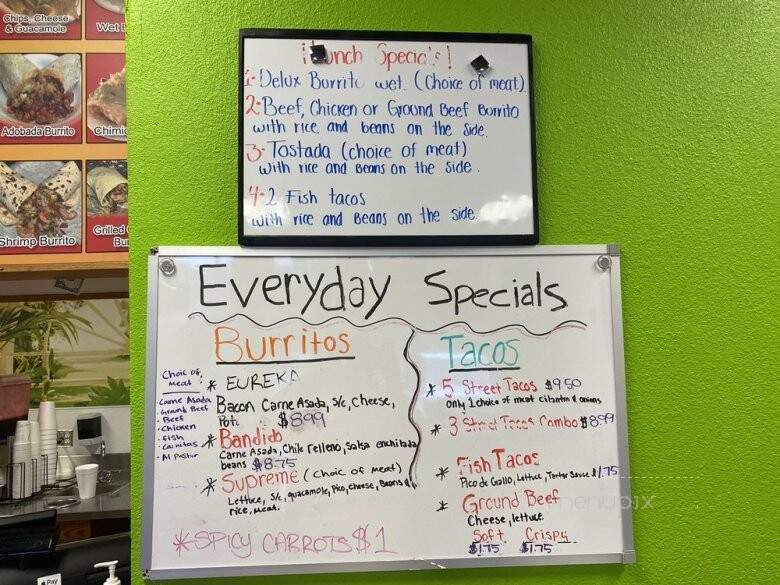 Chips, Cheese
& Guacamole
Wet
Adobada Burrito
Chimic
Shrimp Burrito
Grilled
Bu
¡Lunch Specials!
1-Delux Burrito wet. (Choice of meat).
2-Beef, Chicken or Ground Beef Burrito
with rice and beans on the side.
3-Tostada (choice of meat)
with rice and Beans on the side.
4-2 Fish tacos
with rice and Beans on the side.
Everyday Specials
Burritos
Choic of
meat:
-Carne Asada
-Ground Beef
-Beef
-Chicken
-Fish
-Carnitas
-Al Pastor
* EUREKA
Bacon Carne Asada, S/c, cheese,
Pot. $8.99
* Bandido
Carne Asada, Chile relleno, Salsa enchilada
beans $8.75
* Supreme (choic of meat)
Lettuce, S/c, guacamole, Pico, cheese, Beans &
rice, meat.
*SPICY CARROTS $1
Tacos
* 5 Street Tacos $9.50
only 1 choice of meat cilantro & onions
* 3 Street Tacos Combo $8.99
* Fish Tacos
Pico de Gallo, Lettuce, Tarter Sauce $1.75
* Ground Beef
Cheese, lettuce.
Soft Crispy
$1.75 $1.75
Pay